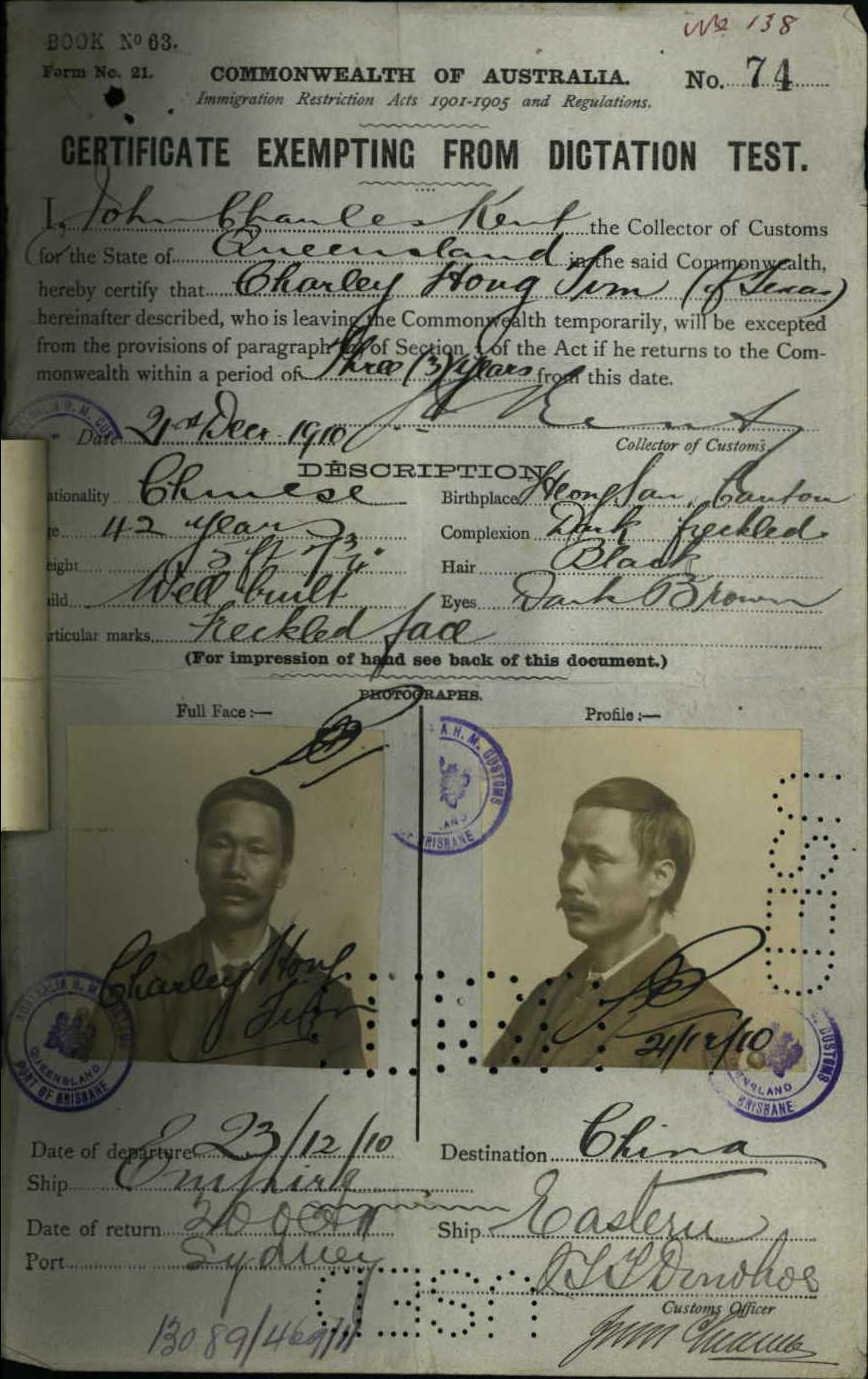 BOOK Nº 63.
Nº 138
Form No. 21.
COMMONWEALTH OF AUSTRALIA.
No. 74
Immigration Restriction Acts 1901-1905 and Regulations.
CERTIFICATE EXEMPTING FROM DICTATION TEST.
I, John Charles Kent the Collector of Customs
for the State of Queensland in the said Commonwealth,
hereby certify that Charley Hong Sim (of Texas)
hereinafter described, who is leaving the Commonwealth temporarily, will be excepted
from the provisions of paragraph of Section 3 of the Act if he returns to the Com-
monwealth within a period of Three (3) years from this date.
Date 21st Decr. 1910 Kent
Collector of Customs
DESCRIPTION
ationality Chinese Birthplace HeongSan, Canton
ge 42 years Complexion Dark freckled
eight 5 ft Hair Black
uild Well built Eyes Dark Brown
articular marks freckled face
(For impression of hand see back of this document.)
PHOTOGRAPHS.
Full Face :— Profile :—
A H. M. CUSTOMS
BRISBANE
Charley Hong
21/12/10
QUEENSLAND
PORT OF BRISBANE
CUSTOMS
BRISBANE
Date of departure 23/12/10 Destination China
Ship Empire
Date of return Ship Eastern
Port Sydney
Donohoe
Customs Officer
13089/469/11